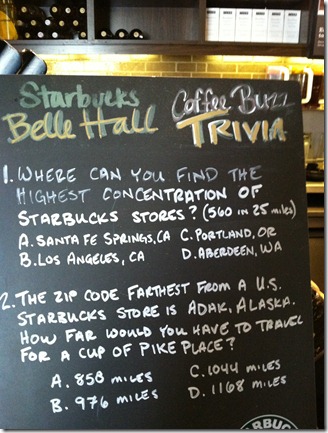 Starbucks Coffee Buzz
Belle Hall TRIVIA
1. WHERE CAN YOU FIND THE
HIGHEST CONCENTRATION OF
STARBUCKS STORES? (560 IN 25 miles)
A. SANTA FE SPRINGS, CA C. PORTLAND, OR
B. LOS ANGELES, CA D. ABERDEEN, WA
2. THE ZIP CODE FARTHEST FROM A U.S.
STARBUCKS STORE IS ADAK, ALASKA.
HOW FAR WOULD YOU HAVE TO TRAVEL
FOR A CUP OF PIKE PLACE?
A. 858 miles C. 1044 miles
B. 976 miles D. 1168 miles
STARBUCKS